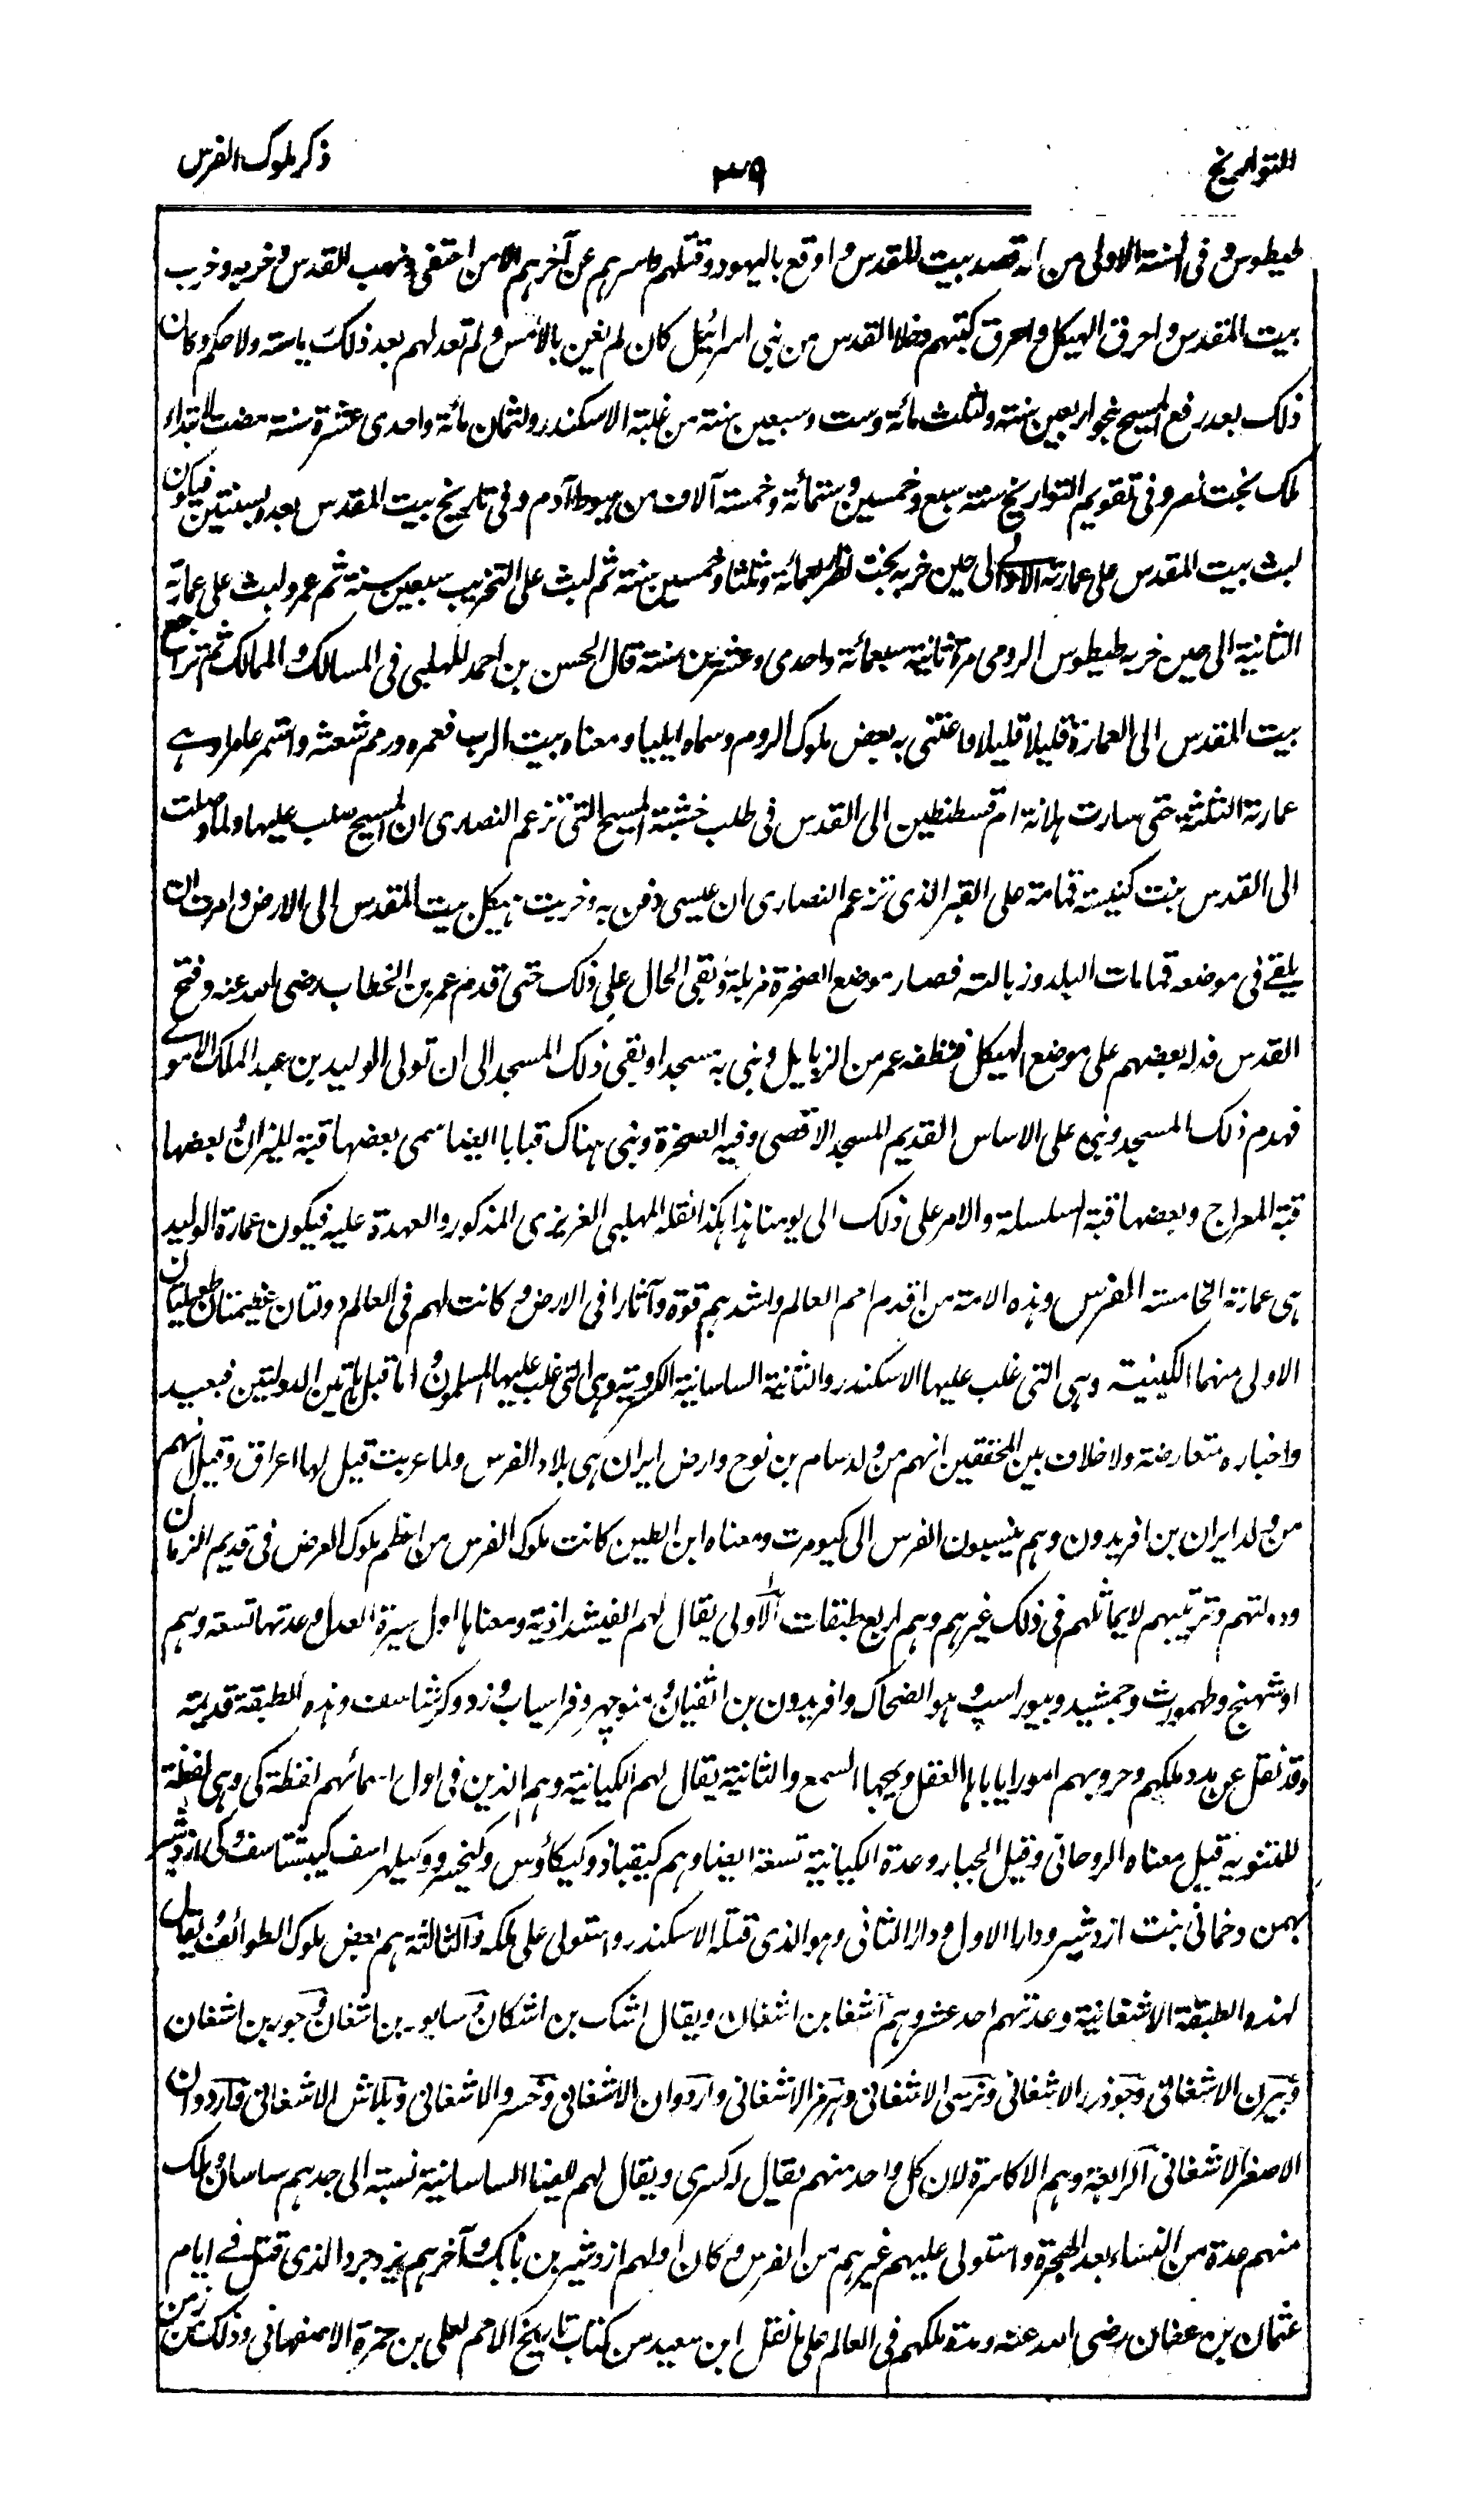 التواريخ
٣٩
ذكر ملوك الفرس
طيطوس و فى السنة الاولى من قصد بيت المقدس و اوقع باليهود و قتلهم و اسرهم عن آخرهم الا من اختفى و نهب القدس و خربه و خرب
بيت المقدس و احرق الهيكل و احرق كتبهم و خلا القدس من بنى اسرائيل كان لم يغن بالامس و لم تعد لهم بعد ذلك رياسة ولا حكم و كان
ذلك بعد رفع المسيح بنحو اربعين سنة و لثلث مائة و ست و سبعين سنة من غلبة الاسكندر و لثمان مائة و احدى عشرة سنة مضت لابتداء
ملك بخت نصر و فى تقويم التواريخ سنة سبع و خمسين و ستمائة و خمسة آلاف من هبوط آدم و فى تاريخ بيت المقدس بعده بسنتين فيكون
لبث بيت المقدس على عمارته الاولى الى حين خربه بخت نصر اربعمائة و ثلثا و خمسين سنة ثم لبث على التخريب سبعين سنة ثم عمر و لبث على عمارته
الثانية الى حين خربه طيطوس الرومى مرة ثانية سبعمائة و احدى و عشرين سنة قال الحسن بن احمد المهلبى فى المسالك و الممالك ثم تراجع
بيت المقدس الى العمارة قليلا قليلا و اعتنى به بعض ملوك الروم و سماه ايليا و معناه بيت الرب فعمره و رمم شعثه و استمر عامرا و هى
عمارته الثالثة حتى سارت هلانة ام قسطنطين الى القدس فى طلب خشبة المسيح التى تزعم النصارى ان المسيح صلب عليها و لما وصلت
الى القدس بنت كنيسة قمامة على القبر الذى تزعم النصارى ان عيسى دفن به و خربت هيكل بيت المقدس الى الارض و امرت ان
يلقى فى موضعه قمامات البلد و زبالته فصار موضع الصخرة مزبلة و بقى الحال على ذلك حتى قدم عمر بن الخطاب رضى الله عنه و فتح
القدس فدله بعضهم على موضع الهيكل فنظفه عمر من الزبايل و بنى به مسجدا و بقى ذلك المسجد الى ان تولى الوليد بن عبد الملك الاموى
فهدم ذلك المسجد و بنى على الاساس القديم المسجد الاقصى و فيه الصخرة و بنى هناك قبابا ايضا سمى بعضها قبة الميزان و بعضها
قبة المعراج و بعضها قبة السلسلة و الامر على ذلك الى يومنا هذا هكذا نقله المهلبى العزيزى المذكور و العهدة عليه فيكون عمارة الوليد
هى عمارته الخامسة الفرس و هذه الامة من اقدم امم العالم و اشدهم قوة و آثارا فى الارض و كانت لهم فى العالم دولتان عظيمتان طويلتان
الاولى منهما الكينية و هى التى غلب عليها الاسكندر و الثانية الساسانية الكسروية و هى التى غلب عليها المسلمون اما قبل هاتين الدولتين فبعيد
و اخباره متعارضة و لا خلاف بين المحققين انهم من ولد سام بن نوح و ارض ايران هى بلاد الفرس و لما عربت قيل لها اعراق و قيل انهم
من ولد ايران بن افريدون و هم ينسبون الفرس الى كيومرت و معناه ابن الطين كانت ملوك الفرس من اعظم ملوك العرض فى قديم الزمان
و دولتهم و ترتيبهم لا يماثلهم فى ذلك غيرهم و هم اربع طبقات الاولى يقال لهم الفيشداذية و معناها اول سيرة العدل و عدتها تسعة و هم
اوشهنج و طهمورث و جمشيد و بيوراسپ و هو الضحاك و افريدون بن اثفيان و منوچهر و فراسياب و زو و كرشاسف و هذه الطبقة قديمة
و قد نقل عن مدد ملكهم و حروبهم امورا ياباها العقل و يمجها السمع و الثانية يقال لهم الكيانية و هم الذين فى اول اسمائهم لفظة كى و هى لفظة
للتنويه قيل معناه الروحانى و قيل الجبار و عدة الكيانية تسعة ايضا و هم كيقباذ و كيكاؤس و كيخسرو و كيلهراسف كيبشتاسف و كى اردشير
بهمن و خمانى بنت ازدشير و دارا الاول و دارا الثانى و هو الذى قتله الاسكندر و استولى على ملكه و الثالثة هم بعض ملوك الطوائف و يقال
لهذه الطبقة الاشغانية و عدتهم احد عشر و هم اشغا بن اشغان و يقال اشك بن اشكان و سابور بن اشغان و جور بن اشغان
و بيرن الاشغانى و جوذرز الاشغانى و نرسى الاشغانى و هرمز الاشغانى و اردوان الاشغانى و خسرو الاشغانى و بلاش الاشغانى و اردوان
الاصغر الاشغانى الرابعة و هم الاكاسرة لان كل واحد منهم يقال له كسرى و يقال لهم ايضا الساسانية نسبة الى جدهم ساسان و ملك
منهم عدة من النساء بعد الهجرة و استولى عليهم غيرهم من الفرس و كان اولهم ازدشير بن بابك و آخرهم يزدجرد الذى قتل فى ايام
عثمان بن عفان رضى الله عنه و مدة ملكهم فى العالم على ما نقل ابن سعيد من كتاب تاريخ الامم لعلى بن حمزة الاصفهانى و ذلك من زمن